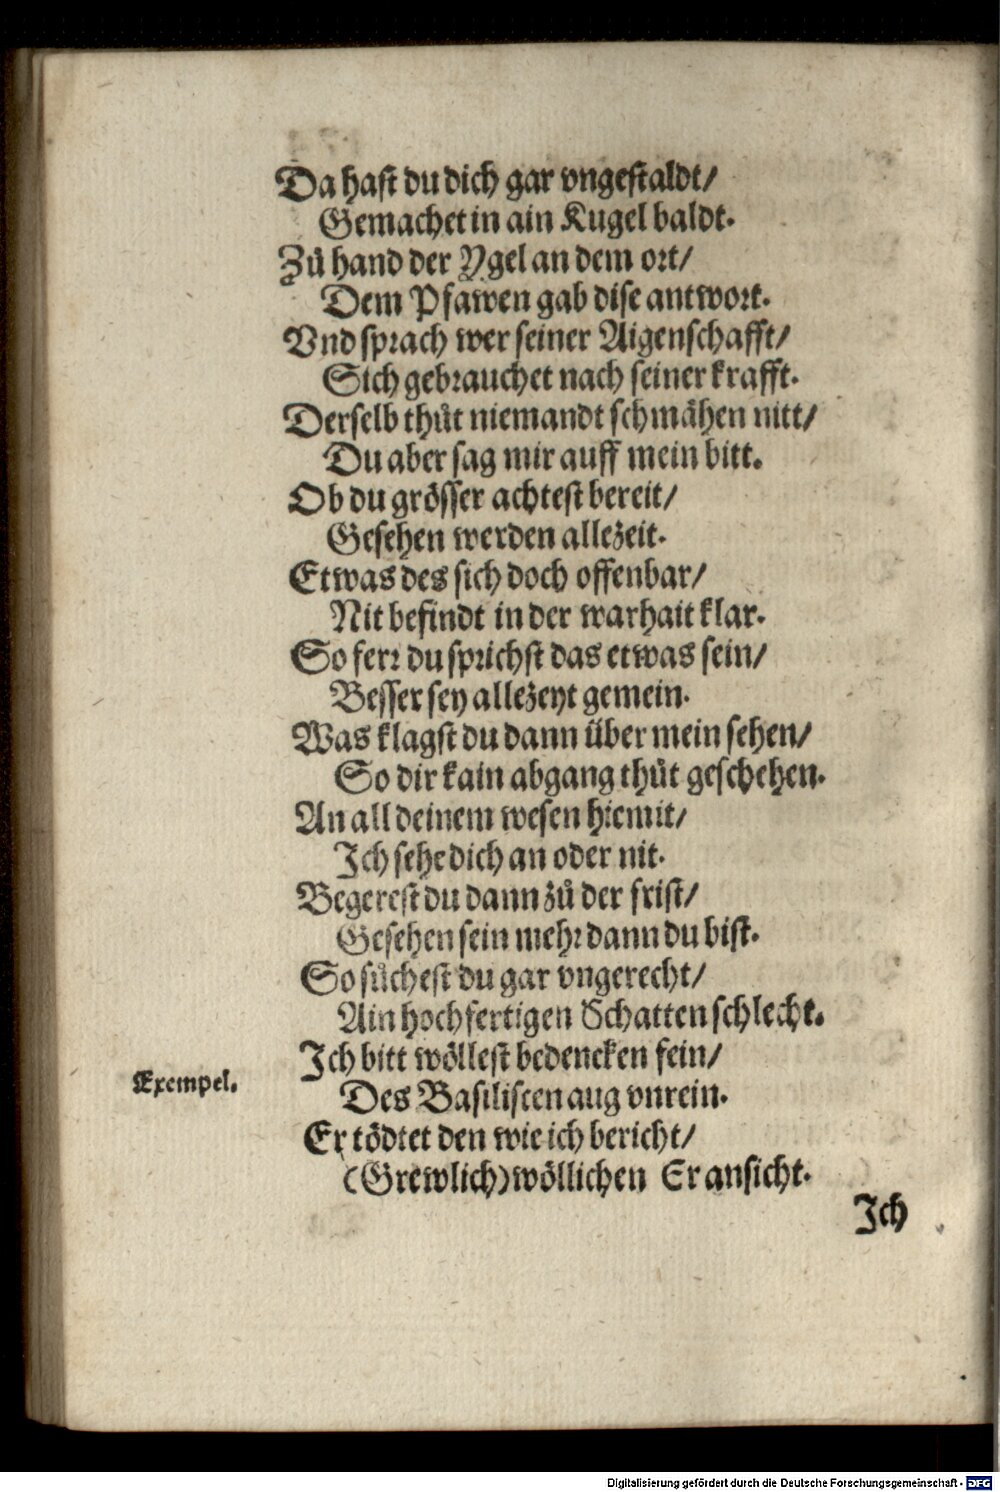 Da hast du dich gar vngestaldt/
Gemachet in ain Kugel baldt.
Zů hand der Ygel an dem ort/
Dem Pfawen gab dise antwort.
Vnd sprach wer seiner Aigenschafft/
Sich gebrauchet nach seiner krafft.
Derselb thůt niemandt schmähen nitt/
Du aber sag mir auff mein bitt.
Ob du grösser achtest bereit/
Gesehen werden allezeit.
Etwas des sich doch offenbar/
Nit befindt in der warhait klar.
So ferr du sprichst das etwas sein/
Besser sey allezeyt gemein.
Was klagst du dann über mein sehen/
So dir kain abgang thůt geschehen.
An all deinem wesen hiemit/
Ich sehe dich an oder nit.
Begerest du dann zů der frist/
Gesehen sein mehr dann du bist.
So sůchest du gar vngerecht/
Ain hochfertigen Schatten schlecht.
Ich bitt wöllest bedencken fein/
Exempel.
Des Basiliscen aug vnrein.
Er tödtet den wie ich bericht/
(Grewlich) wöllichen Er ansicht.
Ich
Digitalisierung gefördert durch die Deutsche Forschungsgemeinschaft - DFG